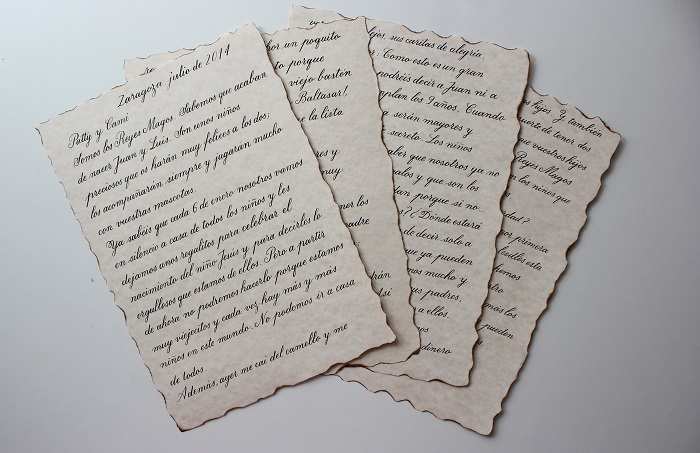 Zaragoza, julio de 2014
Patty y Cami
Somos los Reyes Magos. Sabemos que acaban
de nacer Juan y Luis. Son unos niños
preciosos que os harán muy felices a los dos;
los acompañarán siempre y jugaran mucho
con vuestras mascotas.
Ya sabéis que cada 6 de enero nosotros vamos
en silencio a casa de todos los niños y les
dejamos unos regalitos para celebrar el
nacimiento del niño Jesús y para decirles lo
orgullosos que estamos de ellos. Pero a partir
de ahora no podremos hacerlo porque estamos
muy viejecitos y cada vez hay más y más
niños en este mundo. No podemos ir a casa
de todos.
Además, ayer me caí del camello y me
un poquito
porque
viejo bastón
Baltasar!
la lista
y
muy
los
adre
sus caritas de alegría,
Como esto es un gran
podréis decir a Juan ni a
mplan los 9 años. Cuando
serán mayores y
secreto. Los niños
aber que nosotros ya no
alos y que son los
dan porque si no...
s? ¿Dónde estará
de decir solo a
que ya pueden
mos mucho y
us padres,
a ellos.
nos
dinero
hijos. Y también
uerte de tener dos
que vuestros hijos
Reyes Magos
los niños que
dad?
por primera
edles esta
hemos
tro
más los
pueden